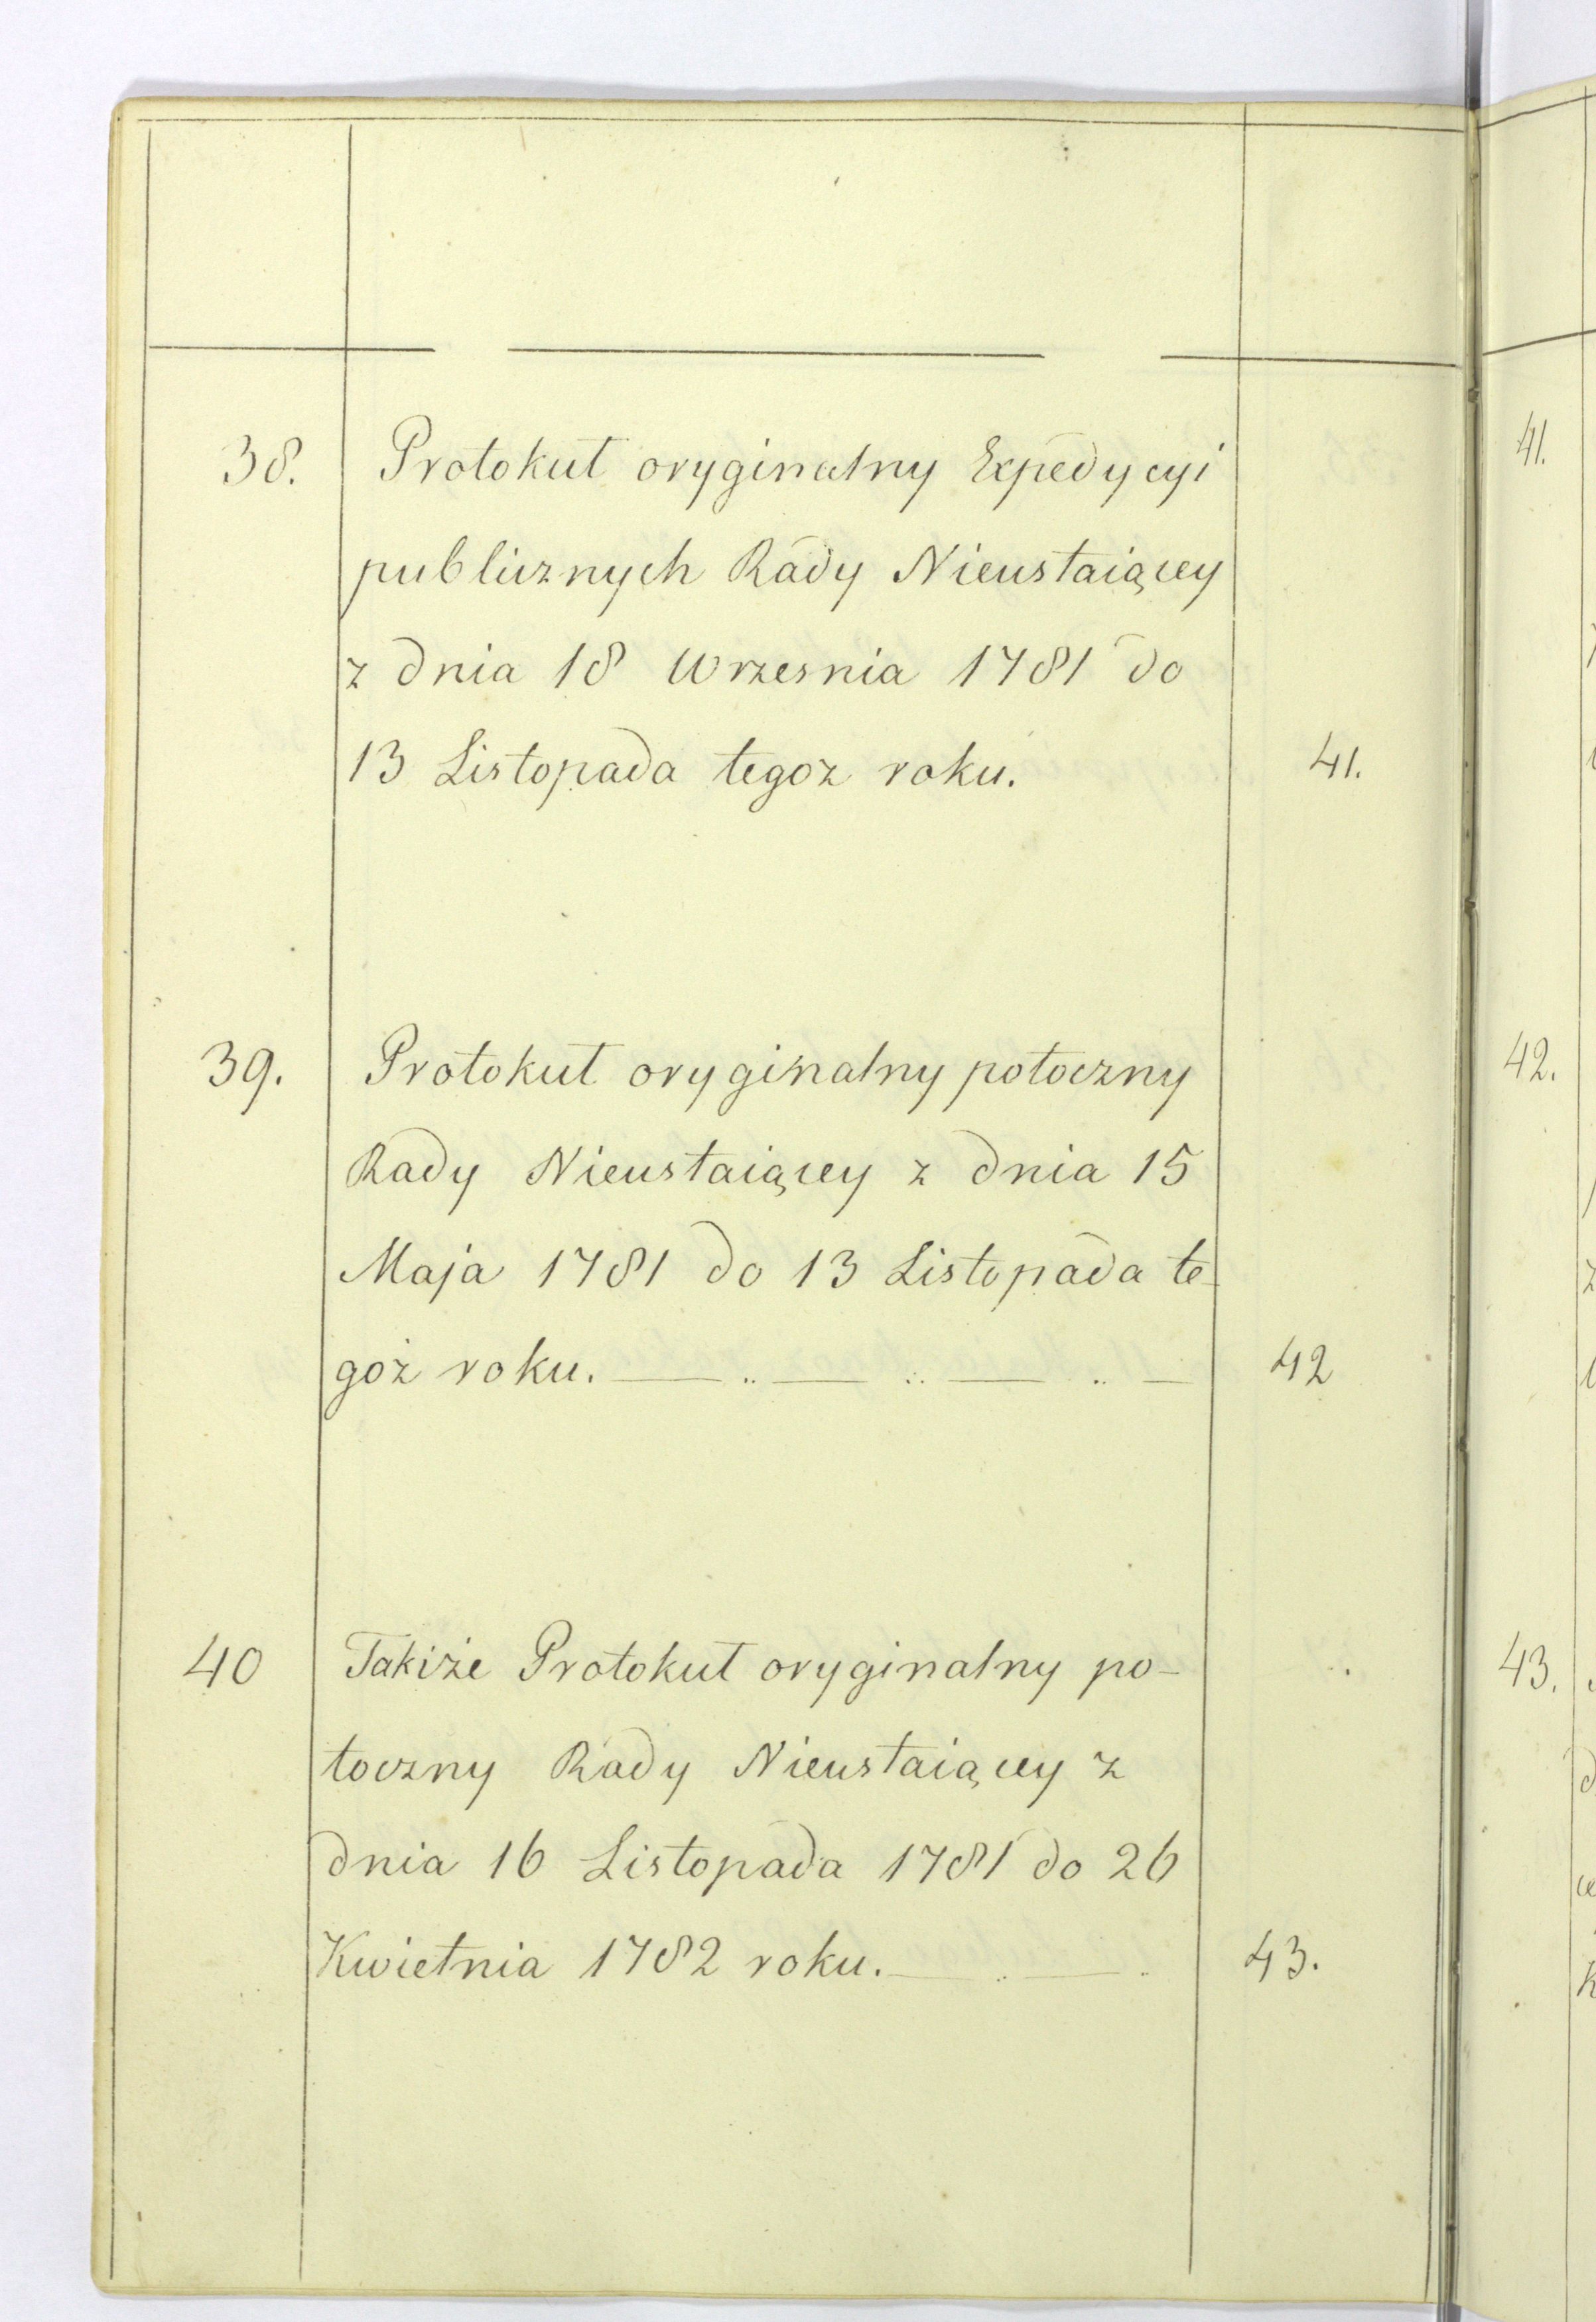 38. Protokuł oryginalny Expedycyi
publicznych Rady Nieustaiącey
z dnia 18 Wrzesnia 1781 do
13 Listopada tegoz roku. 41.
39. Protokuł oryginalny potoczny
Rady Nieustaiącey z dnia 15
Maja 1781 do 13 Listopada te-
goż roku. — .. — .. — .. — 42
40 Takiże Protokuł oryginalny po-
toczny Rady Nieustaiącey z
dnia 16 Listopada 1781 do 26
Kwietnia 1782 roku. — .. — .. 43.
41.
42.
43.